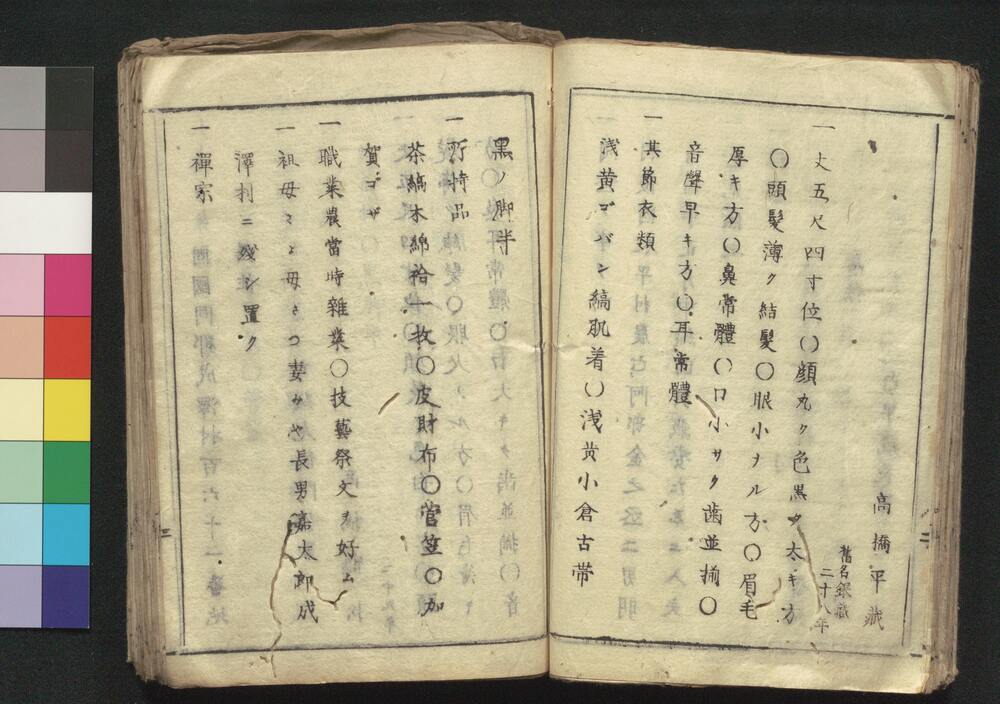 高橋平蔵
舊名銀蔵
二十八年
一丈五尺四寸位〇顔丸ク色黒ク太キ方
〇頭髪薄ク結髪〇眼小ナル方〇眉毛
厚キ方〇鼻常體〇口小サク歯並揃〇
音聲早キ方〇耳常體
一其節衣類
浅黄ゴバン縞肌着〇浅黄小倉古帯
黒ノ脚半
一所持品
茶縞木綿袷一枚〇皮財布〇菅笠〇加
賀ゴザ
一職業農當時雑業〇技藝祭文ヲ好ム
一祖母ミよ母さつ妻みや長男嘉太郎成
澤村ニ残シ置ク
一禅宗
二
三